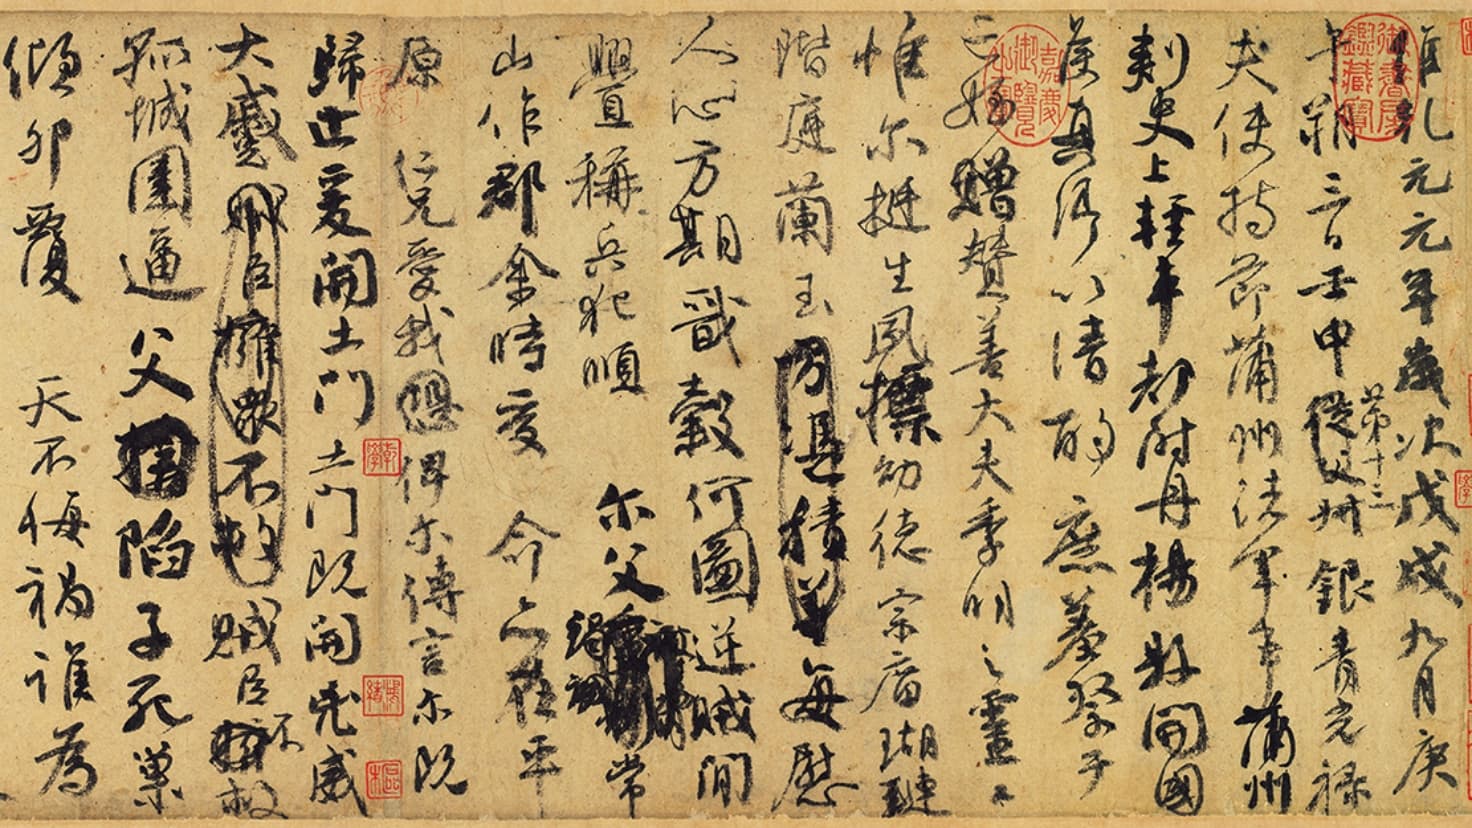 維乾元元年歲次戊戌九月庚
午朔三日壬申第十三從父叔銀青光祿
夫使持節蒲州諸軍事蒲州
刺史上輕車都尉丹楊縣開國
侯真卿以清酌庶羞祭于
亡姪贈贊善大夫季明之靈曰
惟爾挺生夙標幼德宗廟瑚璉
階庭蘭玉方憑積善每慰
人心方期戩穀何圖逆賊閒
釁稱兵犯順爾父竭誠常
山作郡余時受命亦在平
原仁兄愛我恐俾爾傳言爾既
歸止爰開土門土門既開凶威
大蹙賊臣擁眾不救賊臣不救
孤城圍逼父陷子死巢
傾卵覆天不悔禍誰為
御書房鑑藏寶
嘉慶御覽之寶
乾學